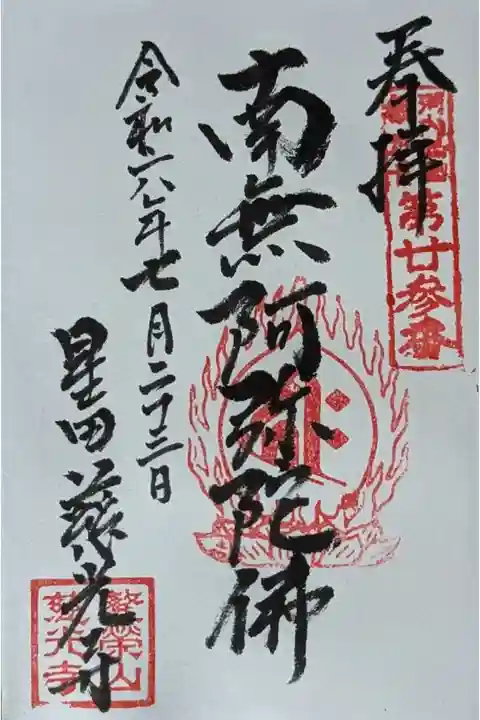 奉拝
第廿参番
南無阿弥陀佛
令和六年七月二十三日
星田慈光寺
繁榮山
慈光寺